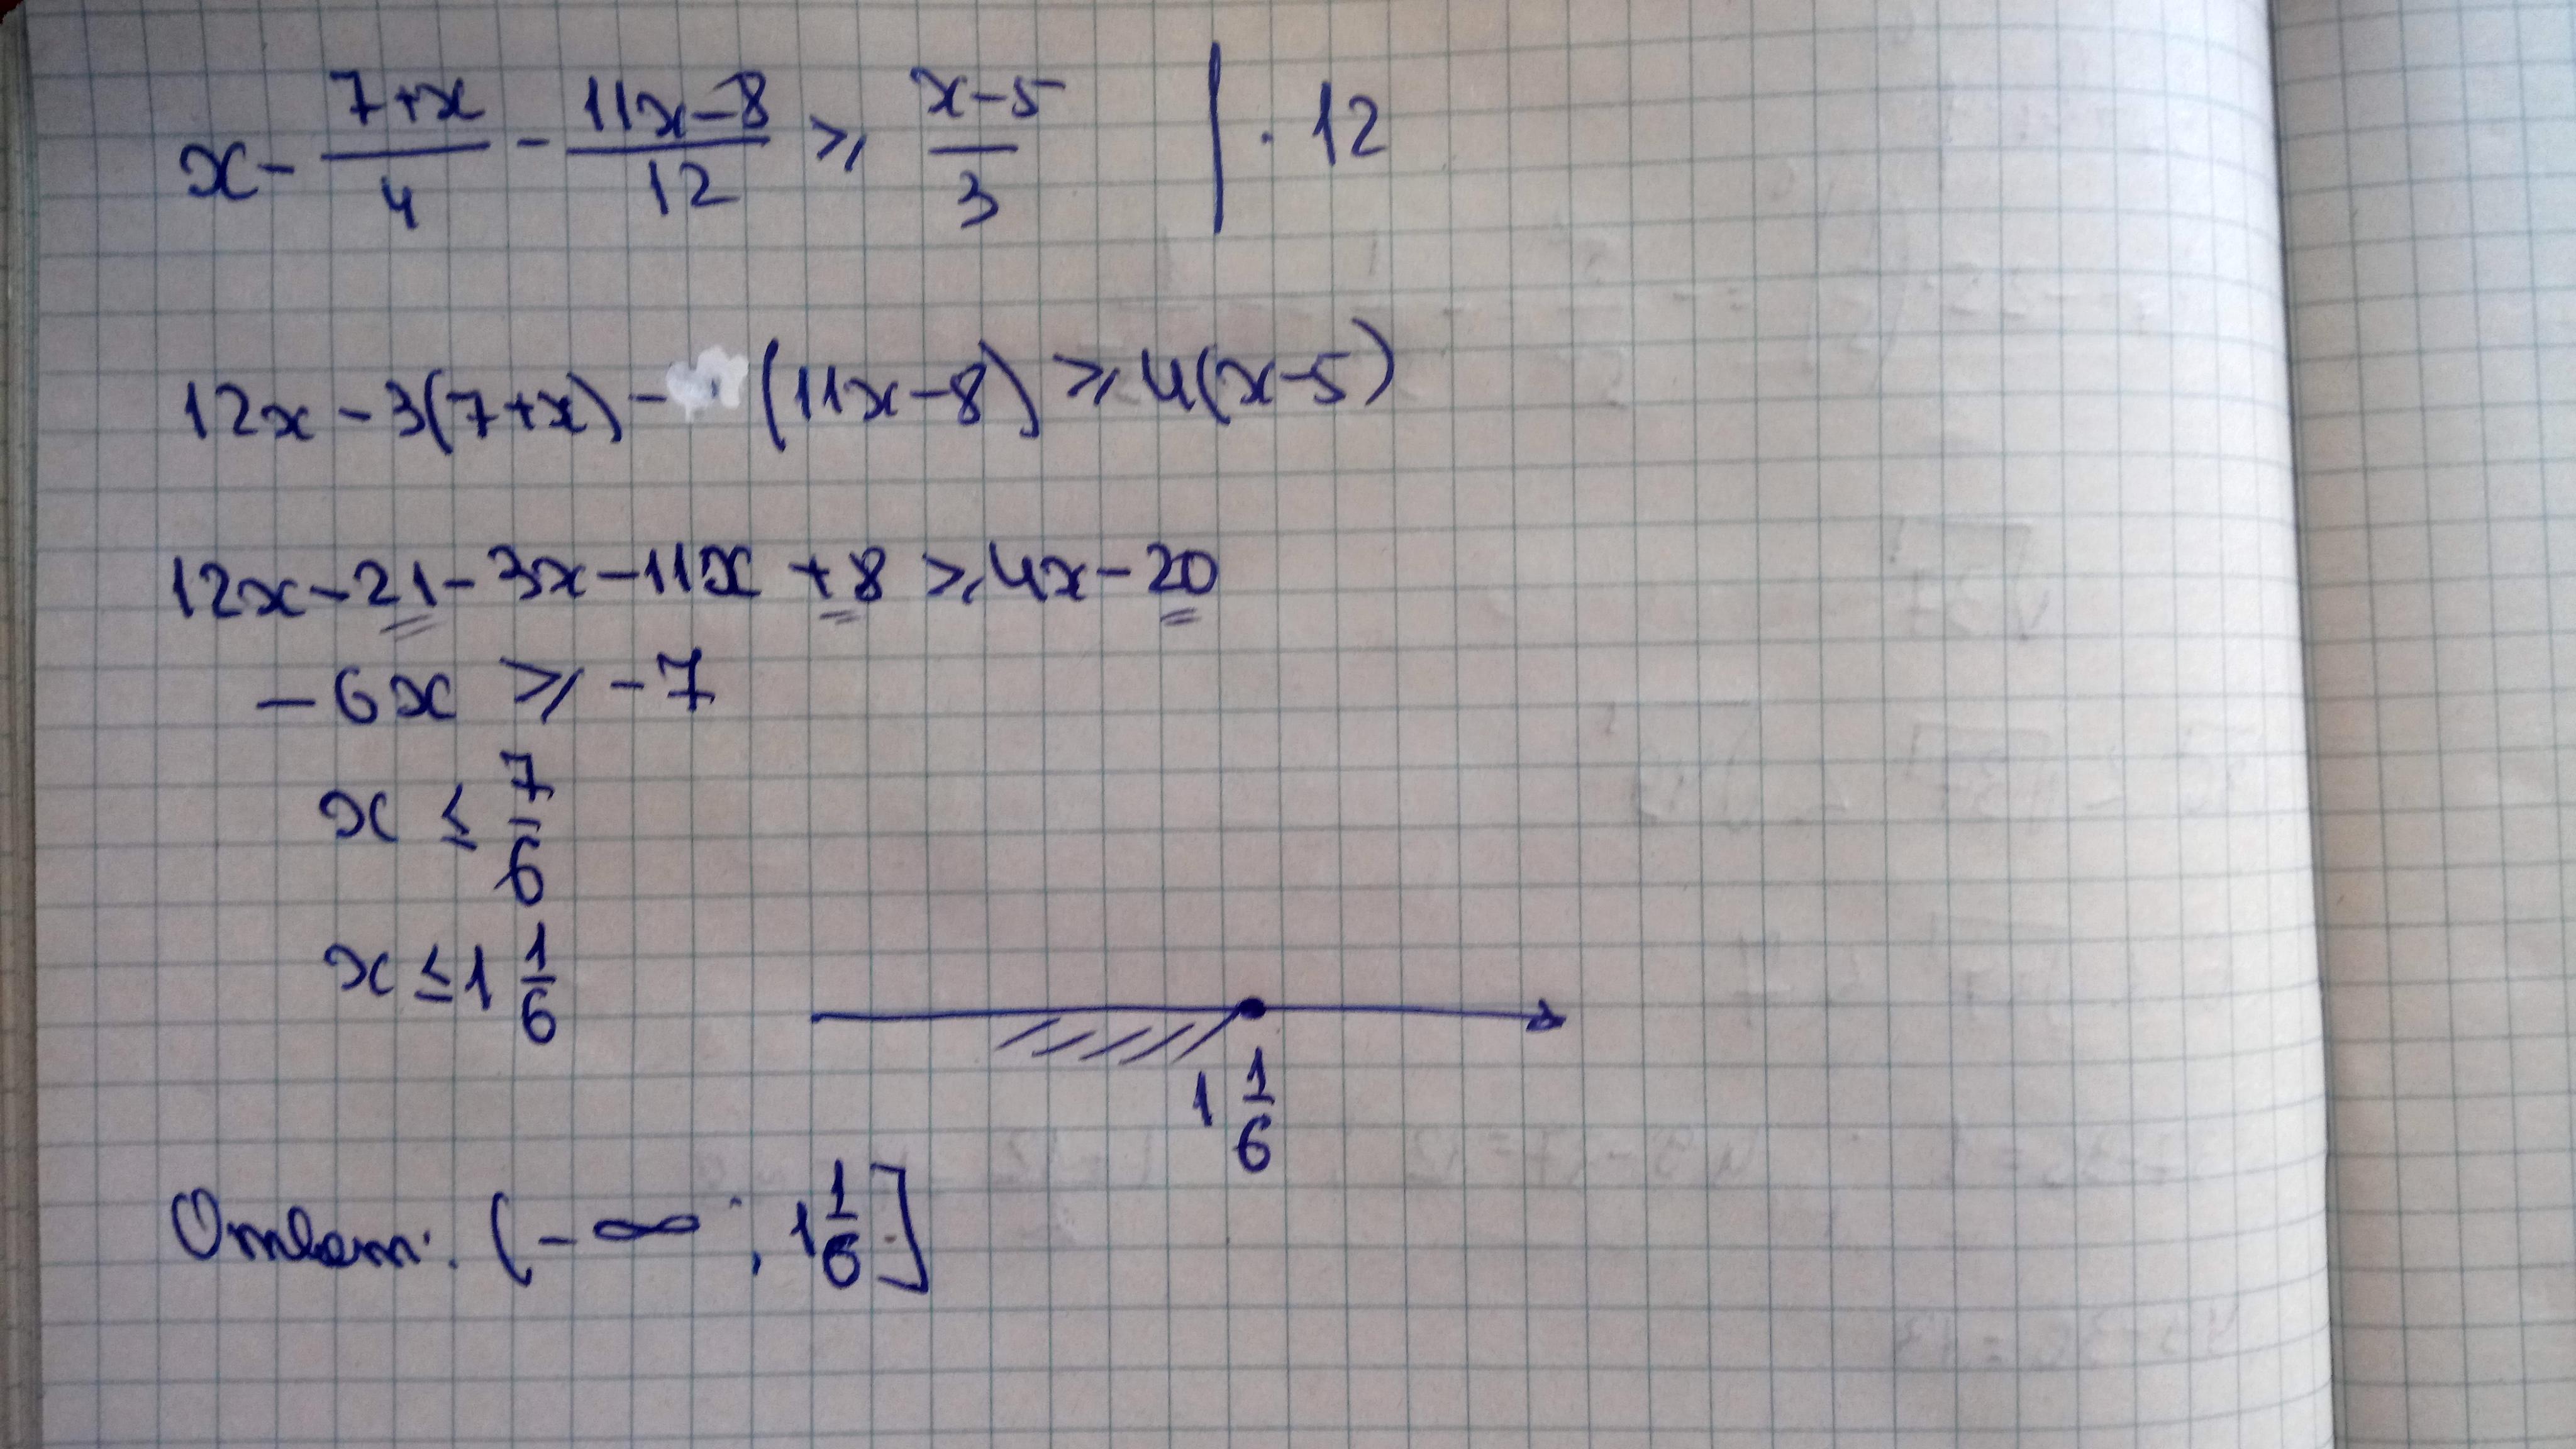 x - \frac{7+x}{4} - \frac{11x-8}{12} ⩾ \frac{x-5}{3} | · 12
12x - 3(7+x) - (11x-8) ⩾ 4(x-5)
12x - 21 - 3x - 11x + 8 ⩾ 4x - 20
-6x ⩾ -7
x ≤ \frac{7}{6}
x ≤ 1\frac{1}{6}
1\frac{1}{6}
Ответ: (-∞; 1\frac{1}{6}]